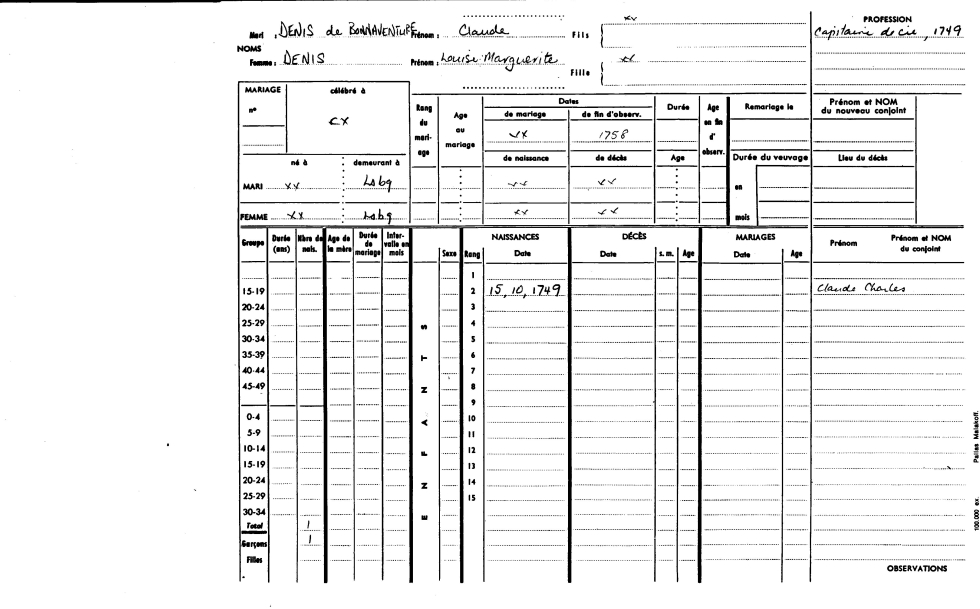 xx PROFESSION
Mari : DENIS de BONNAVENTURE Prénom : Claude Fils Capitaine de cie, 1749
NOMS
Femme : DENIS Prénom : Louise Marguerite xx
Fille
MARIAGE célébré à
n° CX
Rang du mari- age Age au mariage Dates Durée Age en fin d' observ. Remariage le Prénom et NOM du nouveau conjoint
de mariage de fin d'observ.
xx 1758
né à demeurant à de naissance de décès Age Durée du veuvage Lieu du décès
MARI xx Lsbg xx xx en
FEMME xx Lsbg xx xx mois
Groupe Durée (ans) Nbre de nais. Age de la mère Durée de mariage Inter- valle en mois Sexe Rang NAISSANCES Date DÉCÈS Date s. m. Age MARIAGES Date Age Prénom Prénom et NOM du conjoint
1
15-19 2 15, 10, 1749 Claude Charles
20-24 3
25-29 4
30-34 5
35-39 6
40-44 7
45-49 8
9
0-4 10
5-9 11
10-14 12
15-19 13
20-24 14
25-29 15
30-34
Total 1
Garçons 1
Filles
ENFANTS
OBSERVATIONS
100.000 ex. Pairies Malakoff.